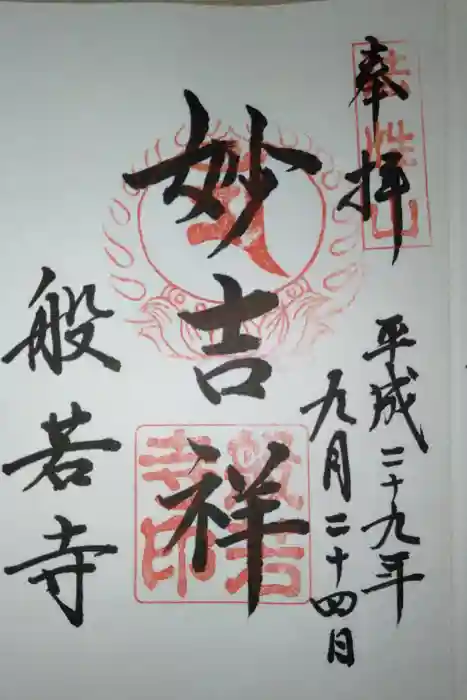 奉拝
法性山
平成二十九年
九月二十四日
妙吉祥
般若寺印
般若寺